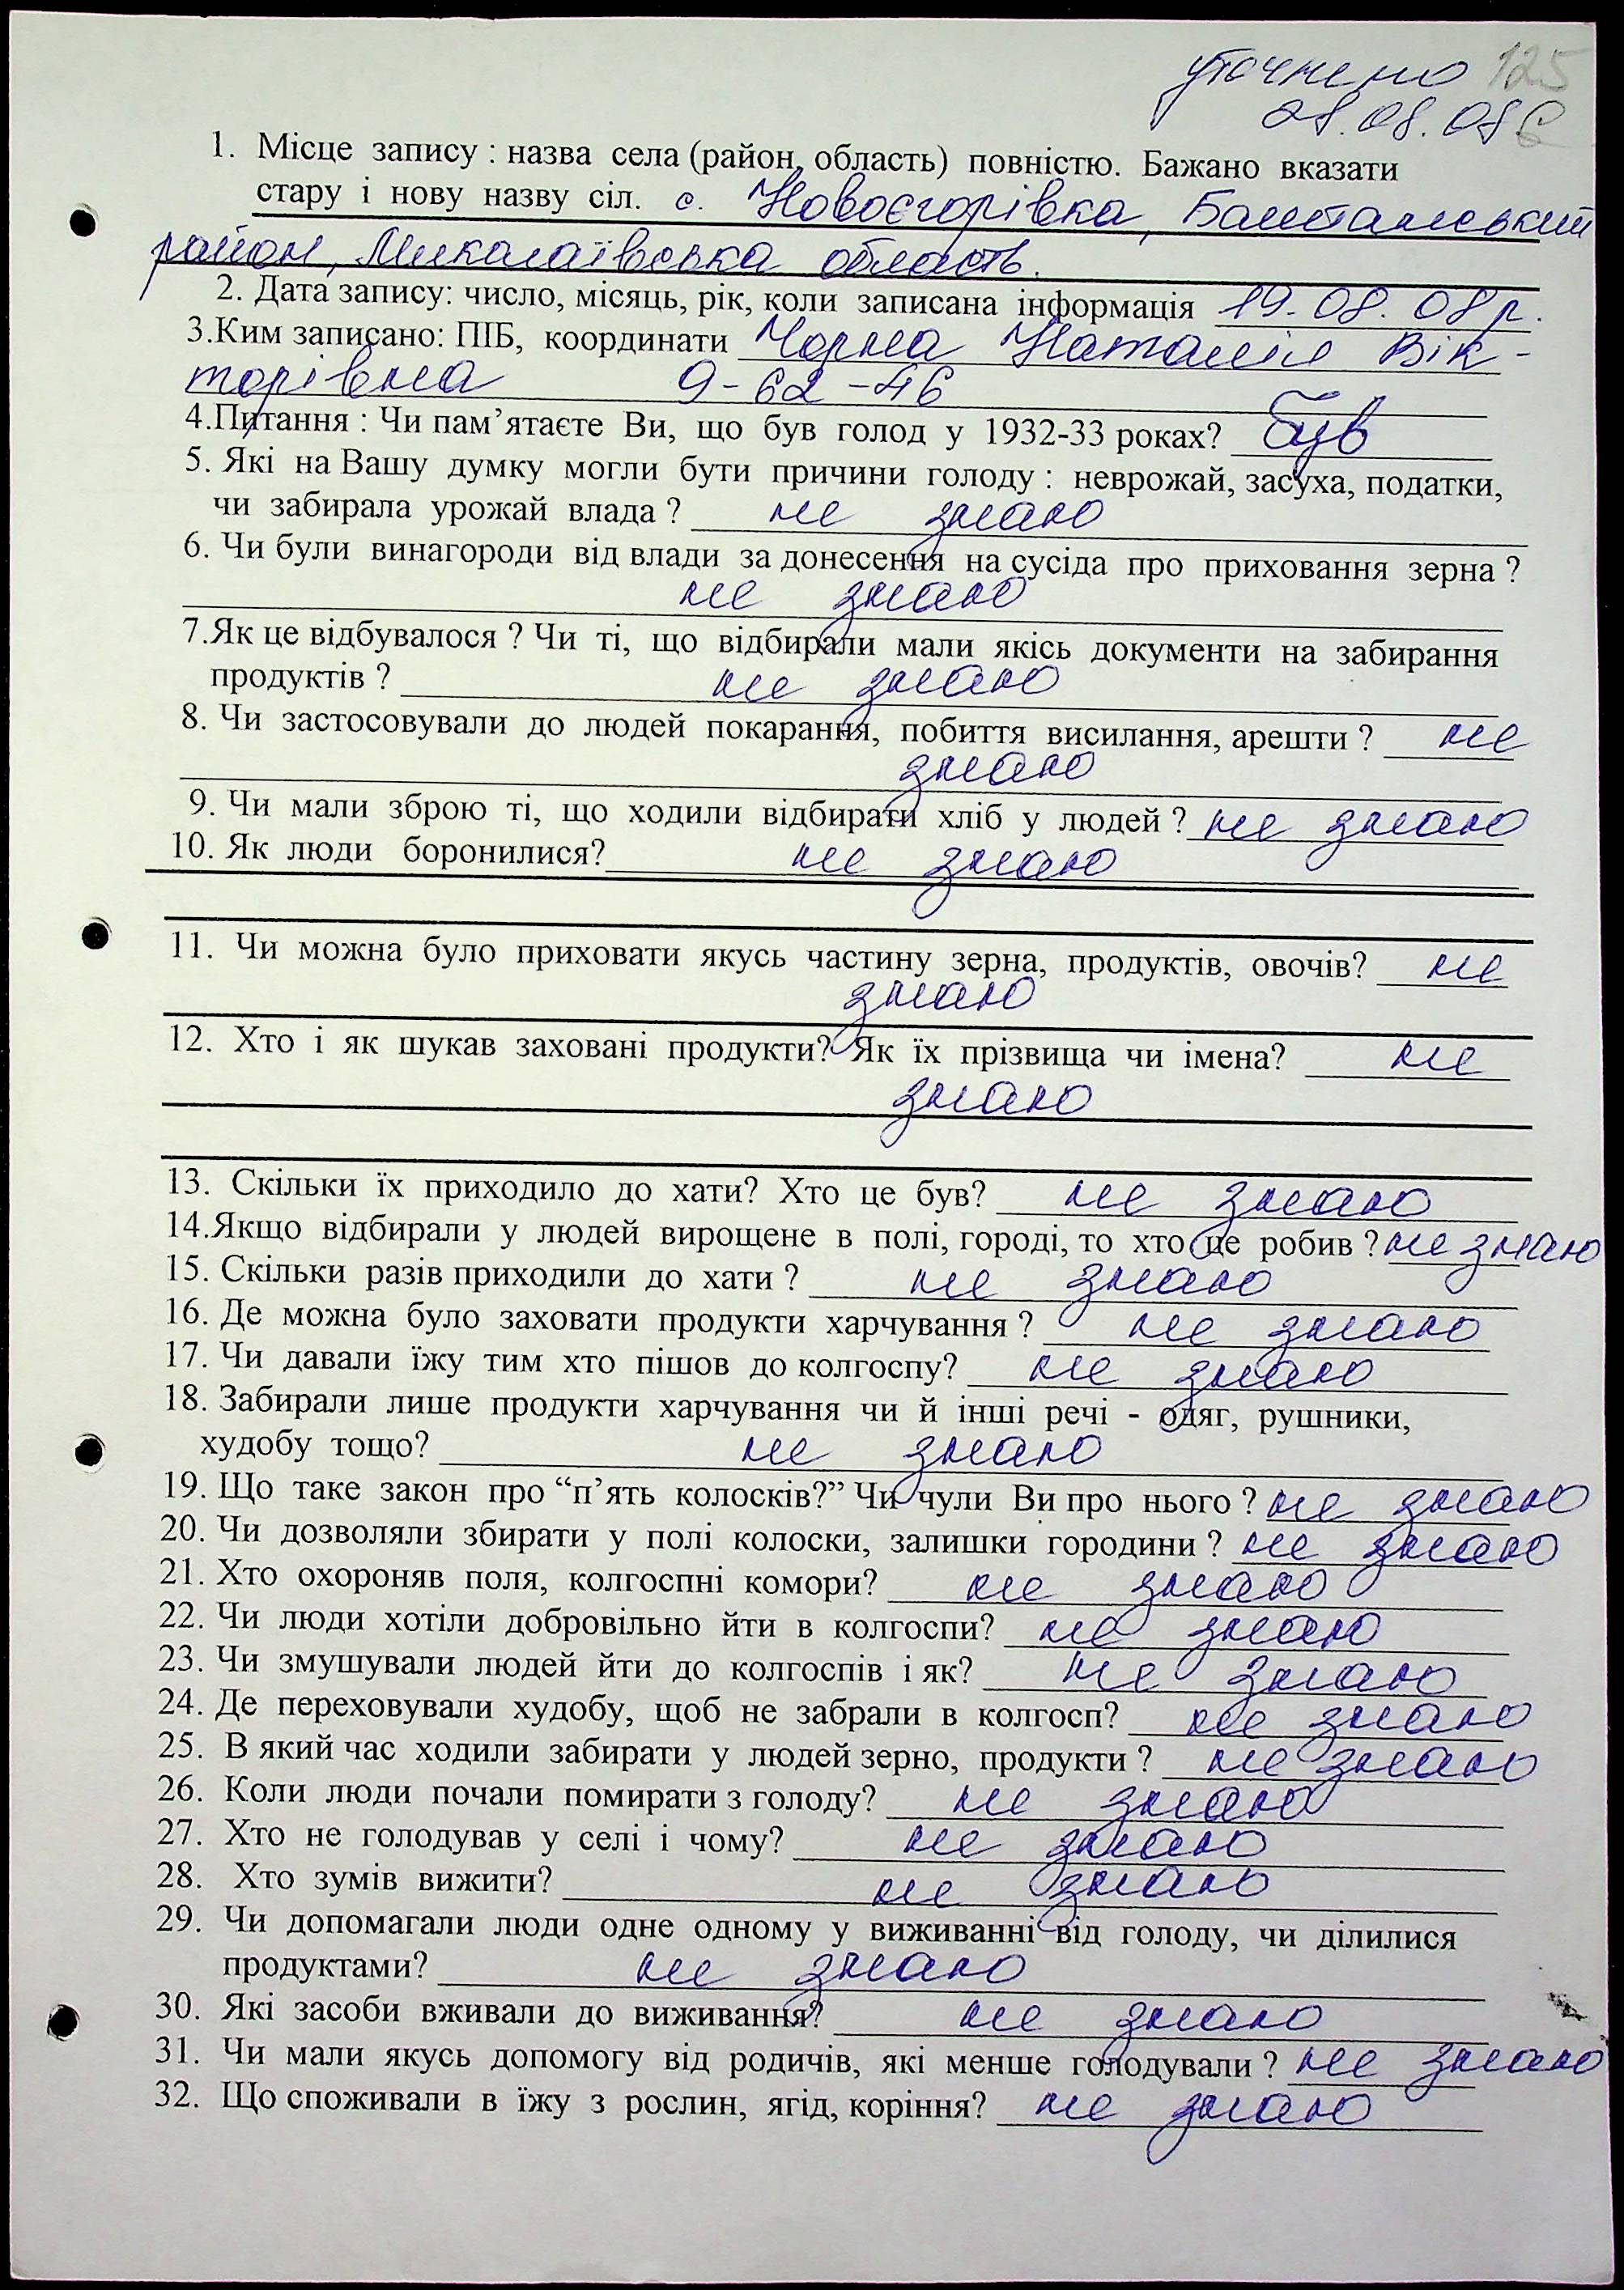 уточнено 125
28.08.08
1. Місце запису : назва села (район, область) повністю. Бажано вказати
стару і нову назву сіл. с. Новоєгорівка, Баштанський
район, Миколаївська область.
2. Дата запису: число, місяць, рік, коли записана інформація 19.08.08 р.
3.Ким записано: ПІБ, координати Чорна Наталія Вік-
торівна 9-62-46
4.Питання : Чи пам’ятаєте Ви, що був голод у 1932-33 роках? був
5. Які на Вашу думку могли бути причини голоду : неврожай, засуха, податки,
чи забирала урожай влада ? не знаю
6. Чи були винагороди від влади за донесення на сусіда про приховання зерна ?
не знаю
7.Як це відбувалося ? Чи ті, що відбирали мали якісь документи на забирання
продуктів ? не знаю
8. Чи застосовували до людей покарання, побиття висилання, арешти ? не
знаю
9. Чи мали зброю ті, що ходили відбирати хліб у людей ? не знаю
10. Як люди боронилися? не знаю
11. Чи можна було приховати якусь частину зерна, продуктів, овочів? не
знаю
12. Хто і як шукав заховані продукти? Як їх прізвища чи імена? не
знаю
13. Скільки їх приходило до хати? Хто це був? не знаю
14.Якщо відбирали у людей вирощене в полі, городі, то хто це робив ? не знаю
15. Скільки разів приходили до хати ? не знаю
16. Де можна було заховати продукти харчування ? не знаю
17. Чи давали їжу тим хто пішов до колгоспу? не знаю
18. Забирали лише продукти харчування чи й інші речі - одяг, рушники,
худобу тощо? не знаю
19. Що таке закон про “п’ять колосків?” Чи чули Ви про нього ? не знаю
20. Чи дозволяли збирати у полі колоски, залишки городини ? не знаю
21. Хто охороняв поля, колгоспні комори? не знаю
22. Чи люди хотіли добровільно йти в колгоспи? не знаю
23. Чи змушували людей йти до колгоспів і як? не знаю
24. Де переховували худобу, щоб не забрали в колгосп? не знаю
25. В який час ходили забирати у людей зерно, продукти ? не знаю
26. Коли люди почали помирати з голоду? не знаю
27. Хто не голодував у селі і чому? не знаю
28. Хто зумів вижити? не знаю
29. Чи допомагали люди одне одному у виживанні від голоду, чи ділилися
продуктами? не знаю
30. Які засоби вживали до виживання? не знаю
31. Чи мали якусь допомогу від родичів, які менше голодували ? не знаю
32. Що споживали в їжу з рослин, ягід, коріння? не знаю